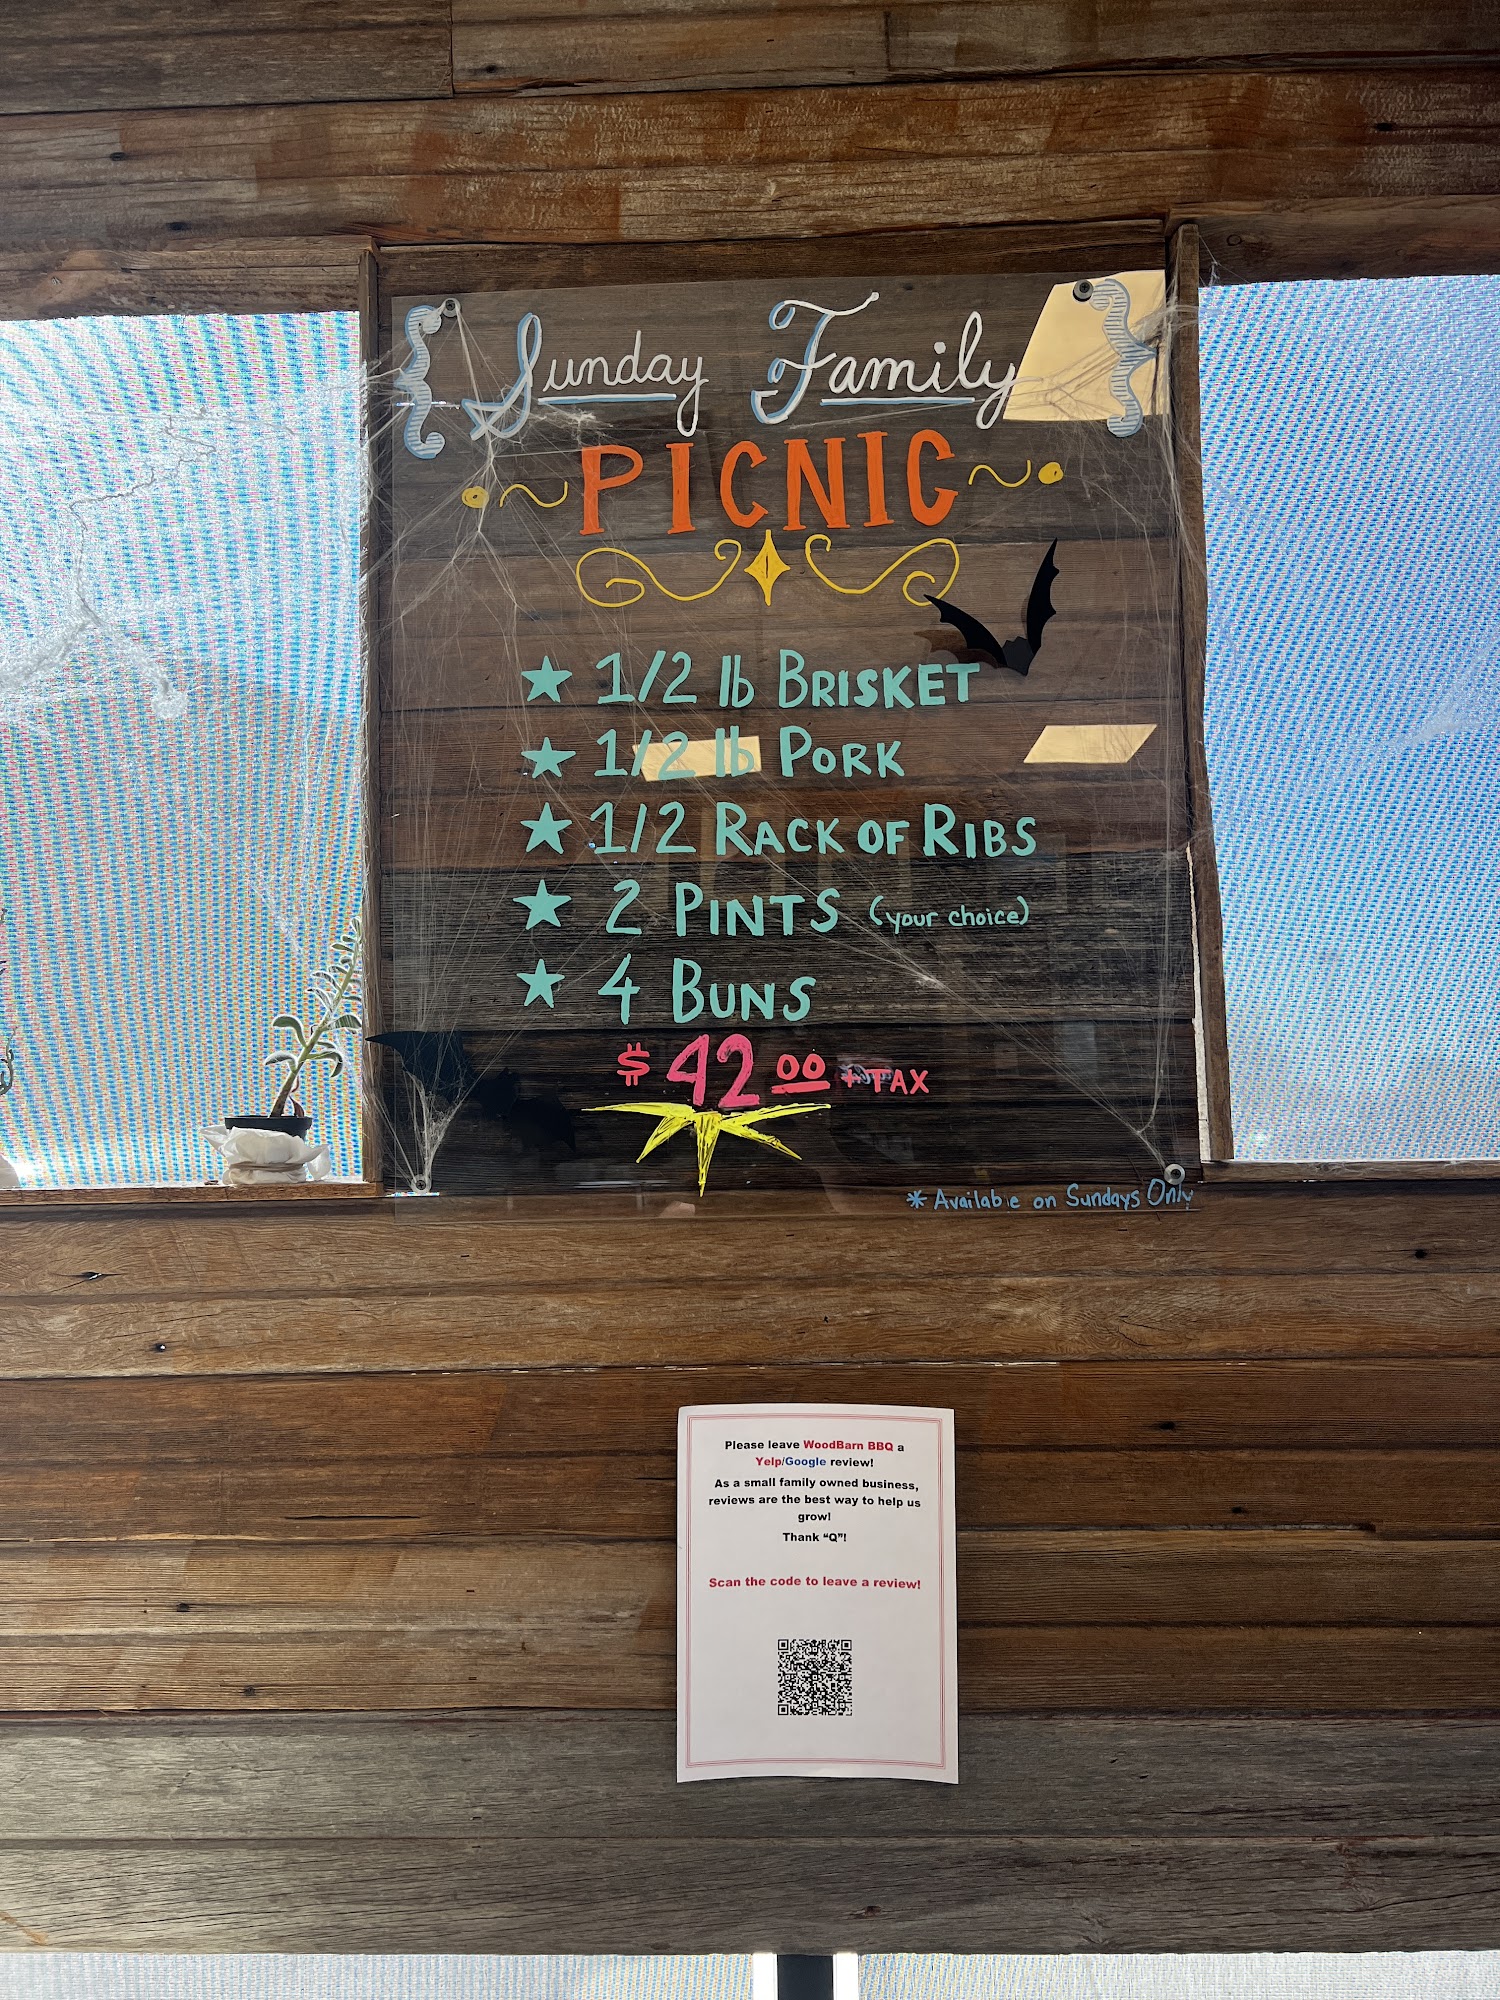 Sunday Family
PICNIC
1/2 lb BRISKET
1/2 lb PORK
1/2 RACK OF RIBS
2 PINTS (your choice)
4 BUNS
$42.00 + TAX
* Available on Sundays Only
Please leave WoodBarn BBQ a
Yelp/Google review!
As a small family owned business,
reviews are the best way to help us
grow!
Thank “Q”!
Scan the code to leave a review!